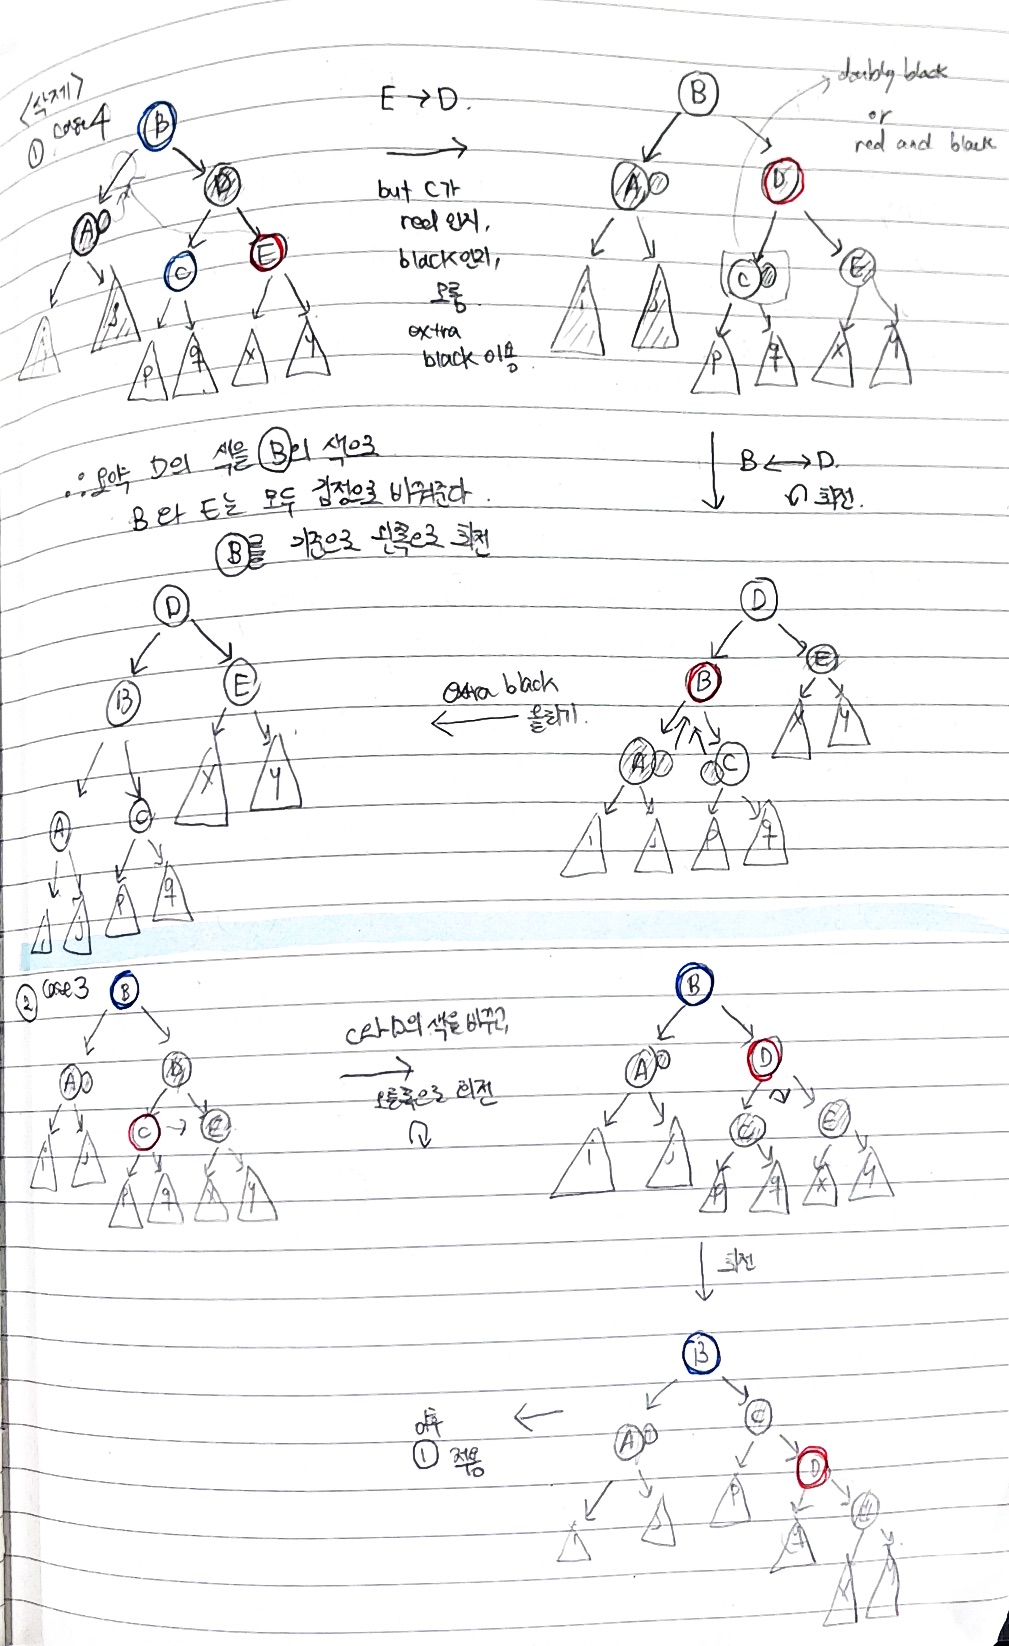 <삭제>
① case4
B
A
D
C
E
i
j
p
q
x
y
E → D.
but C가
red인지,
black인지,
모름
extra
black 이용
doubly black
or
red and black
B
A
D
C
E
i
j
p
q
x
y
B ↔ D.
회전.
∴ 요약 D의 색을 B의 색으로
B와 E는 모두 검정으로 바꿔준다.
B를 기준으로 왼쪽으로 회전
D
B
E
A
C
x
y
i
j
p
q
extra black
올리기.
D
B
E
A
C
x
y
i
j
p
q
② case3
B
A
D
C
E
i
j
p
q
x
y
C와 D의 색을 바꾸고,
오른쪽으로 회전
B
A
D
C
E
i
j
p
q
x
y
회전
B
A
C
p
D
i
j
q
E
x
y
이후
① 적용